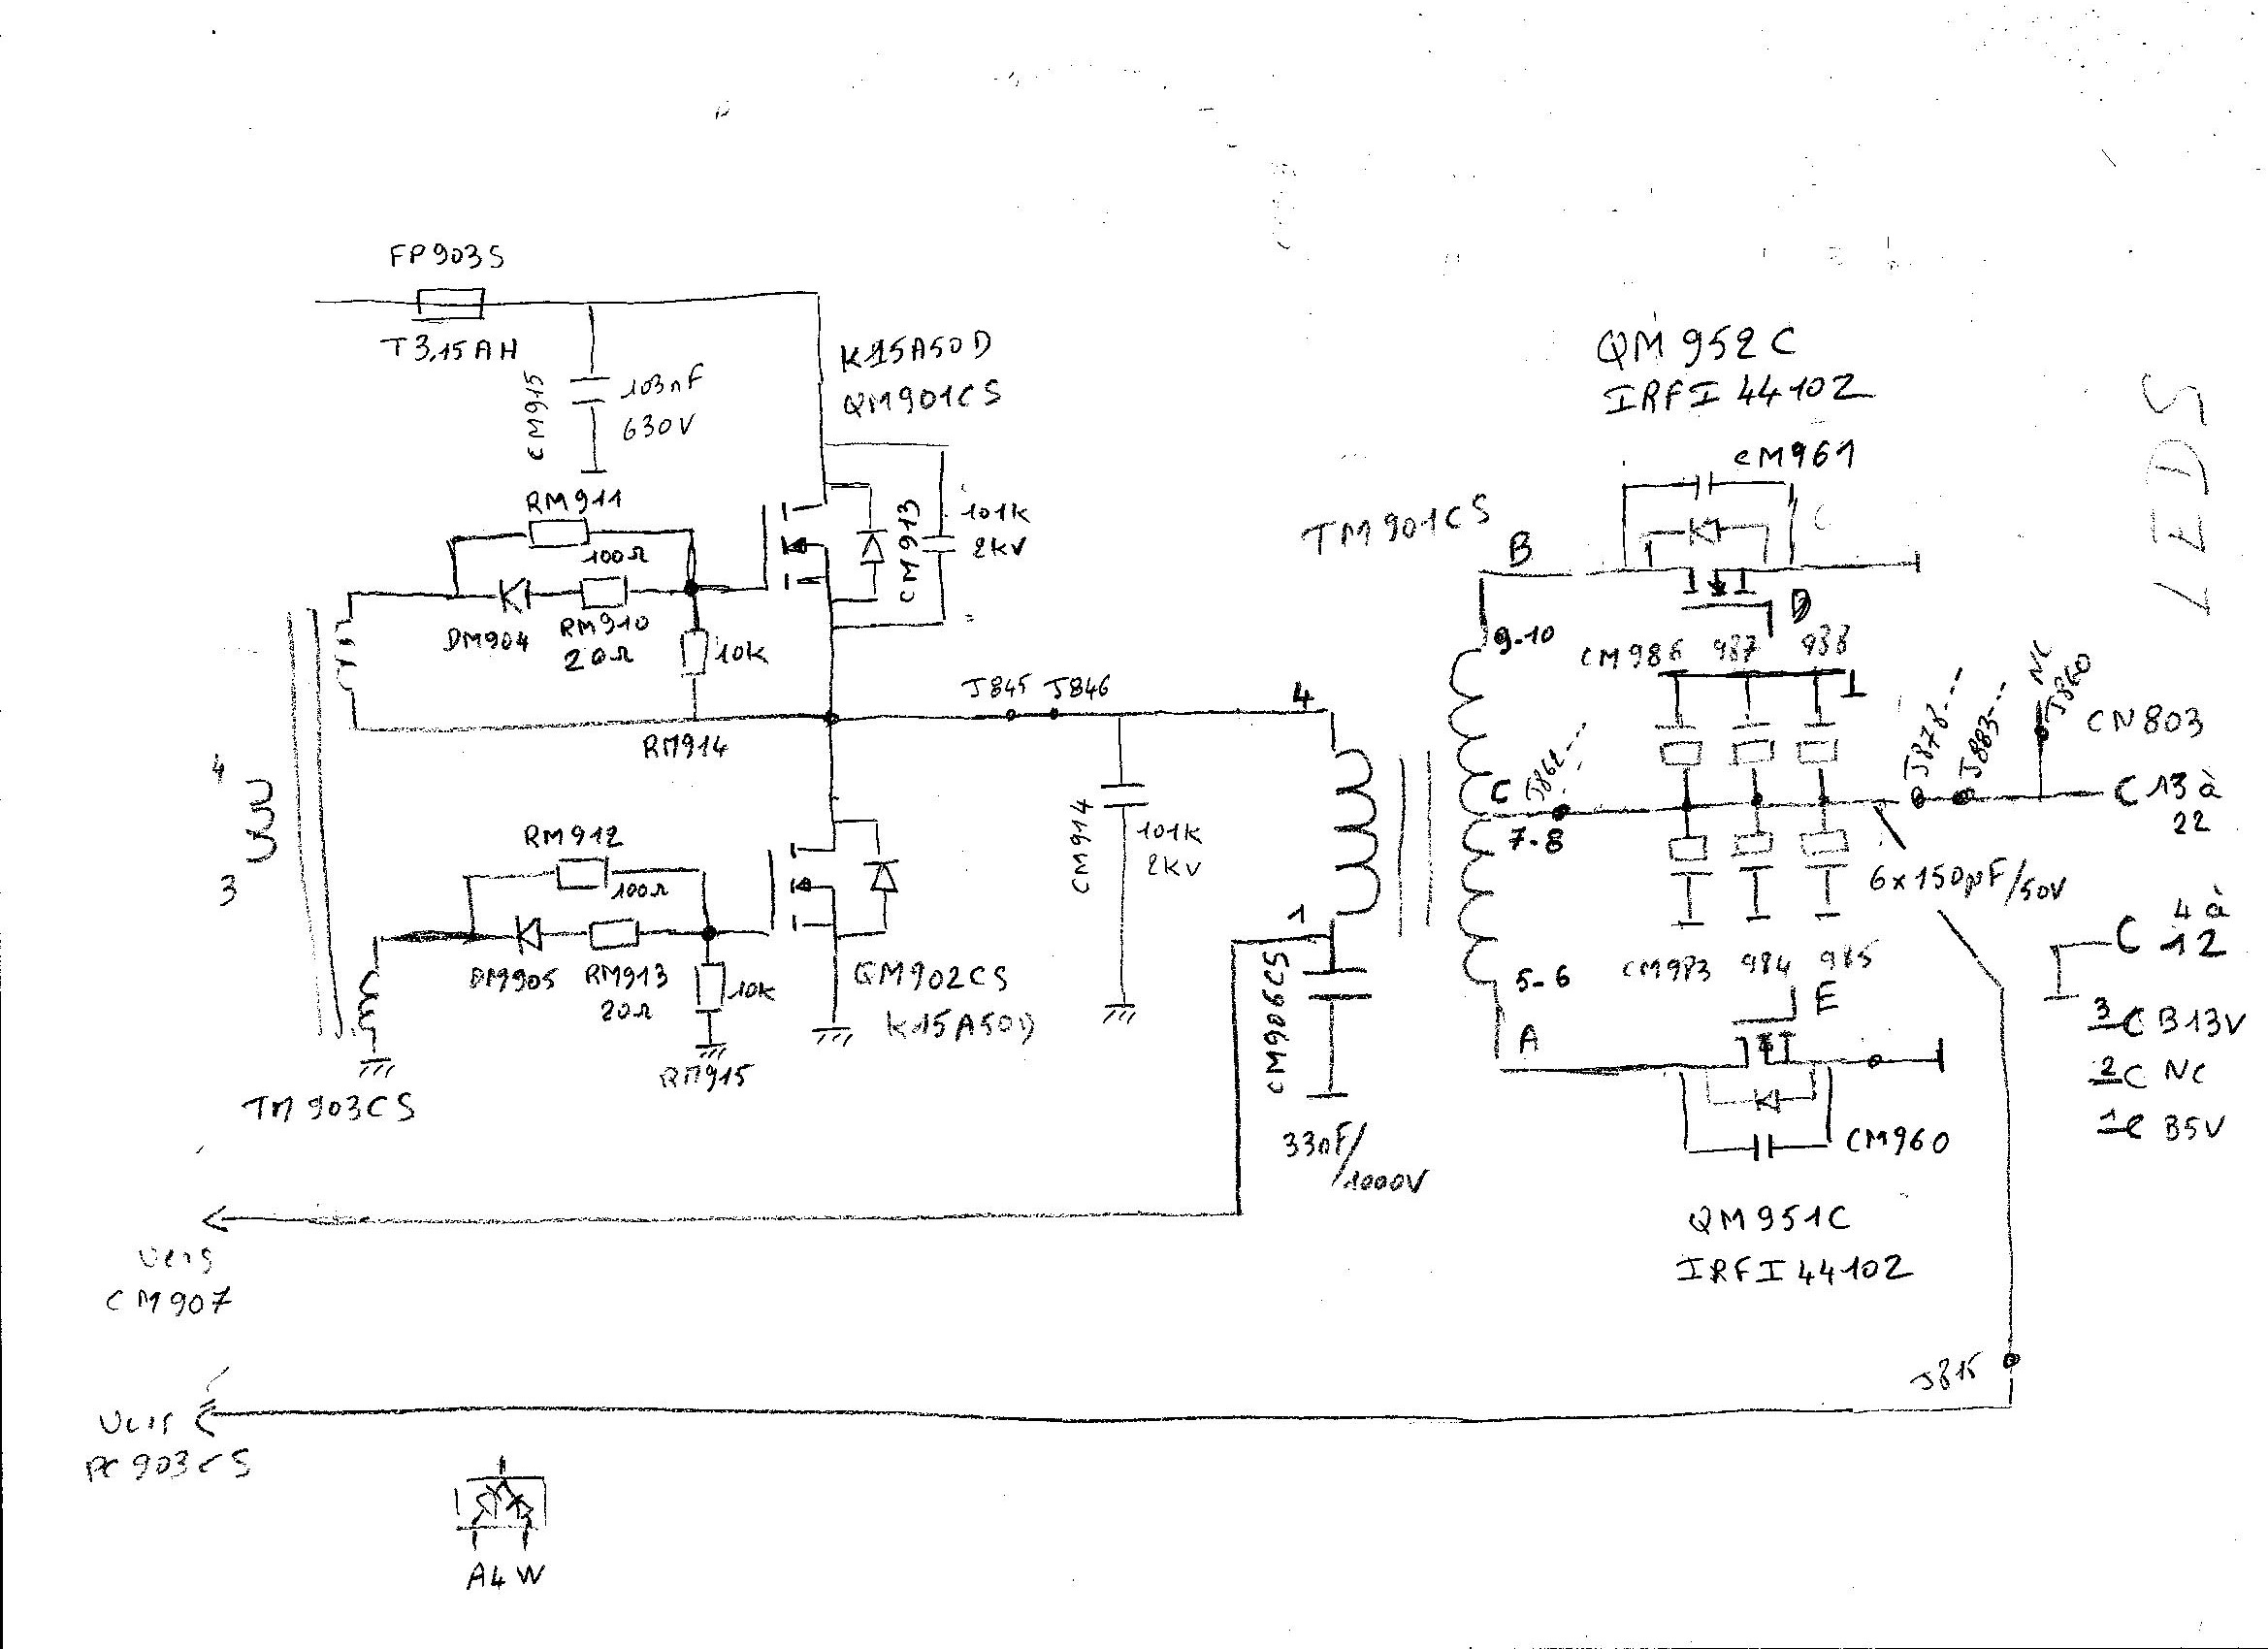 FP903S
T3,15AH
CM915
103nF
630V
K15A50D
QM901CS
RM911
100Ω
DM904
RM910
20Ω
10K
RM914
CM913
101K
2KV
J845 J846
4
3
RM912
100Ω
DM905
RM913
20Ω
10K
RM915
QM902CS
K15A50D
TM903CS
CM914
101K
2KV
TM901CS
4
1
CM906CS
33nF/
1000V
B
9-10
C
7-8
5-6
A
QM952C
IRFI44102
CM961
C
D
CM986 987 988
J862---
J878---
J883---
NC
J860
CN803
C 13 à
22
6x150µF/50V
CM983 984 985
4 à
C 12
3C B13V
2C NC
1C B5V
E
CM960
QM951C
IRFI44102
LEDS
Vers
CM907
J815
Vers
PC903CS
A4W